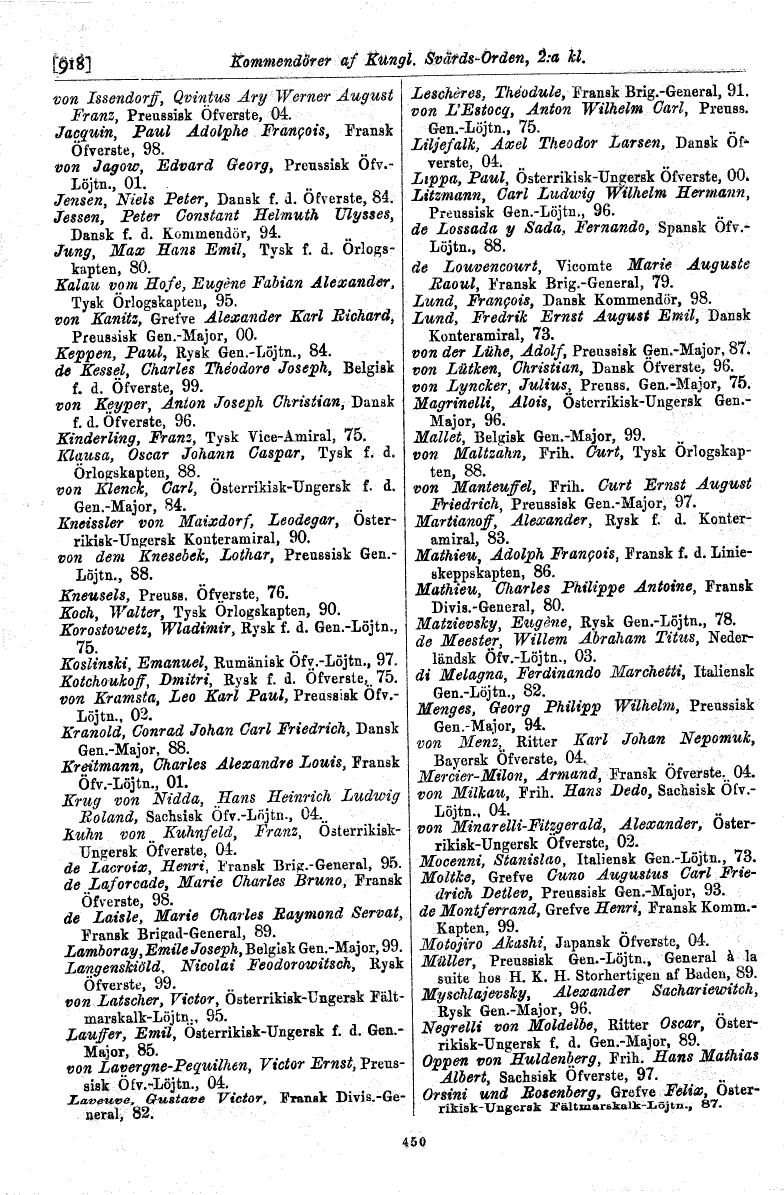 [918]
Kommendörer af Kungl. Svärds-Orden, 2:a kl.
von Issendorff, Qvintus Ary Werner August
Franz, Preussisk Öfverste, 04.
Jacquin, Paul Adolphe François, Fransk
Öfverste, 98.
von Jagow, Edvard Georg, Preussisk Öfv.-
Löjtn., 01.
Jensen, Niels Peter, Dansk f. d. Öfverste, 84.
Jessen, Peter Constant Helmuth Ulysses,
Dansk f. d. Kommendör, 94.
Jung, Max Hans Emil, Tysk f. d. Örlogs-
kapten, 80.
Kalau vom Hofe, Eugène Fabian Alexander,
Tysk Örlogskapten, 95.
von Kanitz, Grefve Alexander Karl Richard,
Preussisk Gen.-Major, 00.
Keppen, Paul, Rysk Gen.-Löjtn., 84.
de Kessel, Charles Théodore Joseph, Belgisk
f. d. Öfverste, 99.
von Keyper, Anton Joseph Christian, Dansk
f. d. Öfverste, 96.
Kinderling, Franz, Tysk Vice-Amiral, 75.
Klausa, Oscar Johann Caspar, Tysk f. d.
Örlogskapten, 88.
von Klenck, Carl, Österrikisk-Ungersk f. d.
Gen.-Major, 84.
Kneissler von Maixdorf, Leodegar, Öster-
rikisk-Ungersk Konteramiral, 90.
von dem Knesebek, Lothar, Preussisk Gen.-
Löjtn., 88.
Kneusels, Preuss. Öfverste, 76.
Koch, Walter, Tysk Örlogskapten, 90.
Korostowetz, Wladimir, Rysk f. d. Gen.-Löjtn.,
75.
Koslinski, Emanuel, Rumänisk Öfv.-Löjtn., 97.
Kotchoukoff, Dmitri, Rysk f. d. Öfverste, 75.
von Kramsta, Leo Karl Paul, Preussisk Öfv.-
Löjtn., 02.
Kranold, Conrad Johan Carl Friedrich, Dansk
Gen.-Major, 88.
Kreitmann, Charles Alexandre Louis, Fransk
Öfv.-Löjtn., 01.
Krug von Nidda, Hans Heinrich Ludwig
Roland, Sachsisk Öfv.-Löjtn., 04.
Kuhn von Kuhnfeld, Franz, Österrikisk-
Ungersk Öfverste, 04.
de Lacroix, Henri, Fransk Brig.-General, 95.
de Laforcade, Marie Charles Bruno, Fransk
Öfverste, 98.
de Laisle, Marie Charles Raymond Servat,
Fransk Brigad-General, 89.
Lamboray, Emile Joseph, Belgisk Gen.-Major, 99.
Langenskiöld, Nicolai Feodorowitsch, Rysk
Öfverste, 99.
von Latscher, Victor, Österrikisk-Ungersk Fält-
marskalk-Löjtn., 95.
Lauffer, Emil, Österrikisk-Ungersk f. d. Gen.-
Major, 85.
von Lavergne-Pequilhen, Victor Ernst, Preus-
sisk Öfv.-Löjtn., 04.
Laveuve, Gustave Victor, Fransk Divis.-Ge-
neral, 82.
Leschères, Théodule, Fransk Brig.-General, 91.
von L'Estocq, Anton Wilhelm Carl, Preuss.
Gen.-Löjtn., 75.
Liljefalk, Axel Theodor Larsen, Dansk Öf-
verste, 04.
Lippa, Paul, Österrikisk-Ungersk Öfverste, 00.
Litzmann, Carl Ludwig Wilhelm Hermann,
Preussisk Gen.-Löjtn., 96.
de Lossada y Sada, Fernando, Spansk Öfv.-
Löjtn., 88.
de Louvencourt, Vicomte Marie Auguste
Raoul, Fransk Brig.-General, 79.
Lund, François, Dansk Kommendör, 98.
Lund, Fredrik Ernst August Emil, Dansk
Konteramiral, 73.
von der Lühe, Adolf, Preussisk Gen.-Major, 87.
von Lütken, Christian, Dansk Öfverste, 96.
von Lyncker, Julius, Preuss. Gen.-Major, 75.
Magrinelli, Alois, Österrikisk-Ungersk Gen.-
Major, 96.
Mallet, Belgisk Gen.-Major, 99.
von Maltzahn, Frih. Curt, Tysk Örlogskap-
ten, 88.
von Manteuffel, Frih. Curt Ernst August
Friedrich, Preussisk Gen.-Major, 97.
Martianoff, Alexander, Rysk f. d. Konter-
amiral, 83.
Mathieu, Adolph François, Fransk f. d. Linie-
skeppskapten, 86.
Mathieu, Charles Philippe Antoine, Fransk
Divis.-General, 80.
Matzievsky, Eugène, Rysk Gen.-Löjtn., 78.
de Meester, Willem Abraham Titus, Neder-
ländsk Öfv.-Löjtn., 03.
di Melagna, Ferdinando Marchetti, Italiensk
Gen.-Löjtn., 82.
Menges, Georg Philipp Wilhelm, Preussisk
Gen.-Major, 94.
von Menz, Ritter Karl Johan Nepomuk,
Bayersk Öfverste, 04.
Mercier-Milon, Armand, Fransk Öfverste, 04.
von Milkau, Frih. Hans Dedo, Sachsisk Öfv.-
Löjtn., 04.
von Minarelli-Fitzgerald, Alexander, Öster-
rikisk-Ungersk Öfverste, 02.
Mocenni, Stanislao, Italiensk Gen.-Löjtn., 73.
Moltke, Grefve Cuno Augustus Carl Frie-
drich Detlev, Preussisk Gen.-Major, 93.
de Montferrand, Grefve Henri, Fransk Komm.-
Kapten, 99.
Motojiro Akashi, Japansk Öfverste, 04.
Müller, Preussisk Gen.-Löjtn., General à la
suite hos H. K. H. Storhertigen af Baden, 89.
Myschlajevsky, Alexander Sachariewitch,
Rysk Gen.-Major, 96.
Negrelli von Moldelbe, Ritter Oscar, Öster-
rikisk-Ungersk f. d. Gen.-Major, 89.
Oppen von Huldenberg, Frih. Hans Mathias
Albert, Sachsisk Öfverste, 97.
Orsini und Rosenberg, Grefve Felix, Öster-
rikisk-Ungersk Fältmarskalk-Löjtn., 87.
450